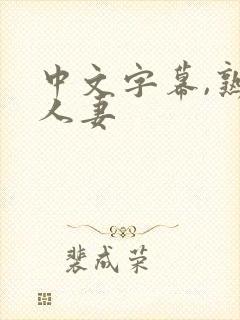 中文字幕,熟
人妻
裴成荣